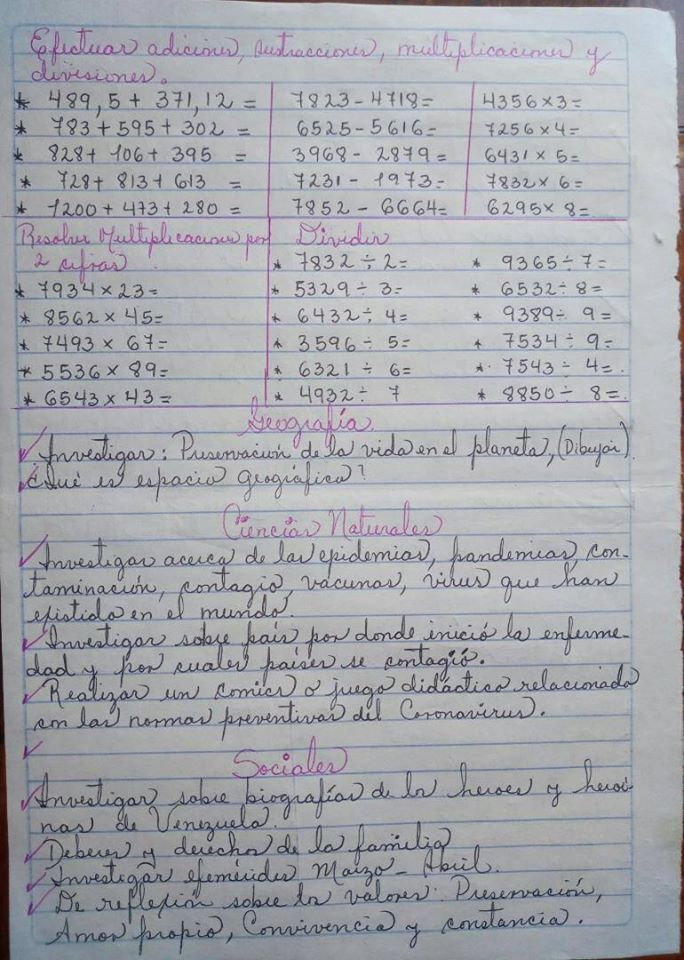 Efectuar adiciones, sustracciones, multiplicaciones y
divisiones.
* 489,5 + 371,12 =
* 783 + 595 + 302 =
* 828 + 106 + 395 =
* 728 + 813 + 613 =
* 1200 + 473 + 280 =
7823 - 4718 =
6525 - 5616 =
3968 - 2879 =
7231 - 1973 =
7852 - 6664 =
4356 x 3 =
7256 x 4 =
6431 x 5 =
7832 x 6 =
6295 x 8 =
Resolver Multiplicaciones por
2 cifras
* 7934 x 23 =
* 8562 x 45 =
* 7493 x 67 =
* 5536 x 89 =
* 6543 x 43 =
Dividir
* 7832 ÷ 2 =
* 5329 ÷ 3 =
* 6432 ÷ 4 =
* 3596 ÷ 5 =
* 6321 ÷ 6 =
* 4932 ÷ 7
* 9365 ÷ 7 =
* 6532 ÷ 8 =
* 9389 ÷ 9 =
* 7534 ÷ 9 =
* 7543 ÷ 4 =
* 8850 ÷ 8 =
Geografía
✓ Investigar: Preservación de la vida en el planeta, (Dibujar)
✓ ¿Qué es espacio geográfico?
Ciencias Naturales
✓ Investigar acerca de las epidemias, pandemias, con-
taminación, contagio, vacunas, virus que han
existido en el mundo.
✓ Investigar sobre país por donde inició la enferme-
dad y por cuales países se contagió.
✓ Realizar un comics o juego didáctico relacionado
con las normas preventivas del Coronavirus.
✓
Sociales
✓ Investigar sobre biografías de los heroes y heroi-
nas de Venezuela.
✓ Deberes y derechos de la familia
✓ Investigar efemérides Marzo - Abril.
✓ De reflexión sobre los valores: Preservación,
Amor propio, Convivencia y constancia.